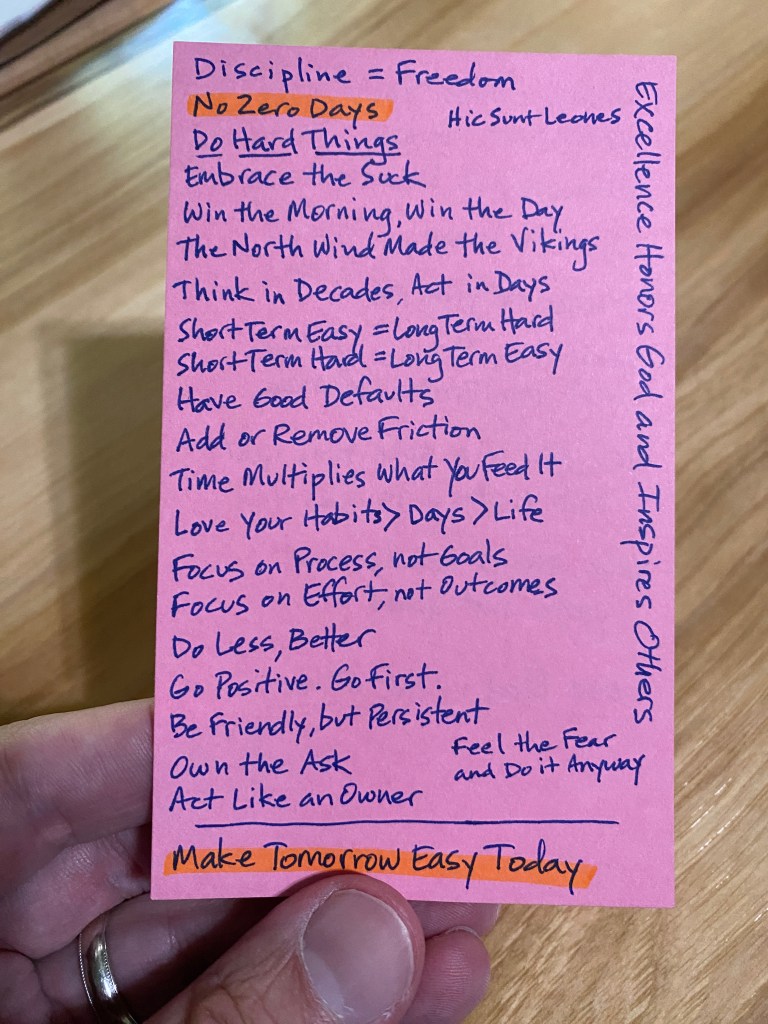 Discipline = Freedom
No Zero Days
Hic Sunt Leones
Do Hard Things
Embrace the Suck
Win the Morning, Win the Day
The North Wind Made the Vikings
Think in Decades, Act in Days
Short Term Easy = Long Term Hard
Short Term Hard = Long Term Easy
Have Good Defaults
Add or Remove Friction
Time Multiplies What You Feed It
Love Your Habits > Days > Life
Focus on Process, not Goals
Focus on Effort, not Outcomes
Do Less, Better
Go Positive. Go First.
Be Friendly, but Persistent
Own the Ask
Act Like an Owner
Feel the Fear
and Do it Anyway
Make Tomorrow Easy Today
Excellence Honors God and Inspires Others